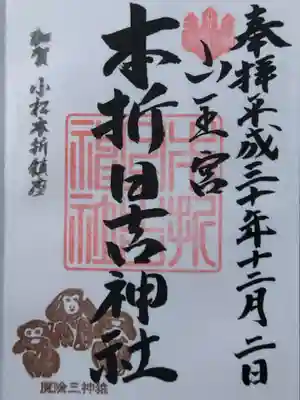 奉拝 平成三十年十二月二日
山王宮
本折日吉神社
加賀 小松本折鎮座